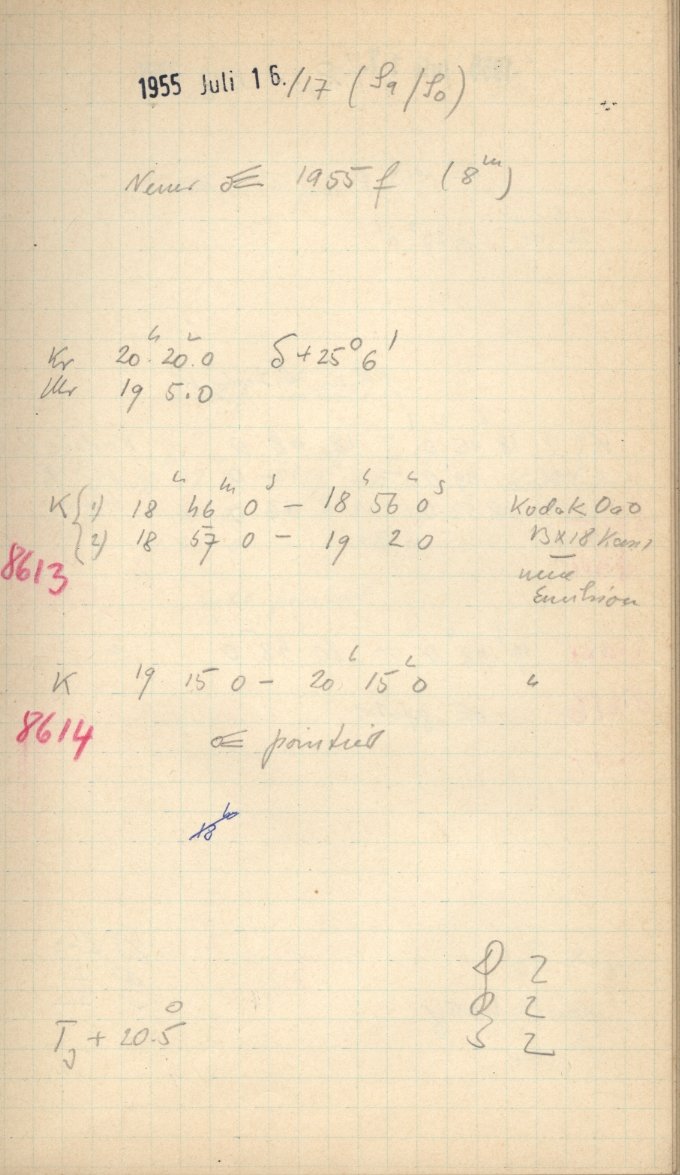 1955 Juli 16./17 (Sa/So)
Neuer ☄ 1955 f (8ᵐ)
Kr 20ʰ 20ᵐ.0 δ +25° 6'
Ur 19 5.0
K { 1) 18ʰ 46ᵐ 0ˢ – 18ʰ 56ᵐ 0ˢ Kodak OaO
2) 18 57 0 – 19 2 0 13x18
8613
neue
Emulsion
K 19 15 0 – 20ʰ 15ᵐ 0 "
8614
☄ pointiert
18ʰ
2
2
T + 20.5° 2